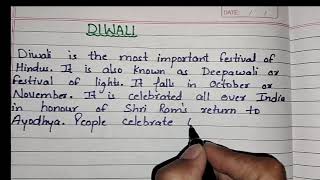 DATE: / /
DIWALI
Diwali is the most important festival of
Hindus. It is also known as Deepawali or
festival of lights. It falls in October or
November. It is celebrated all over India
in honour of Shri Ram's return to
Ayodhya. People celebrate